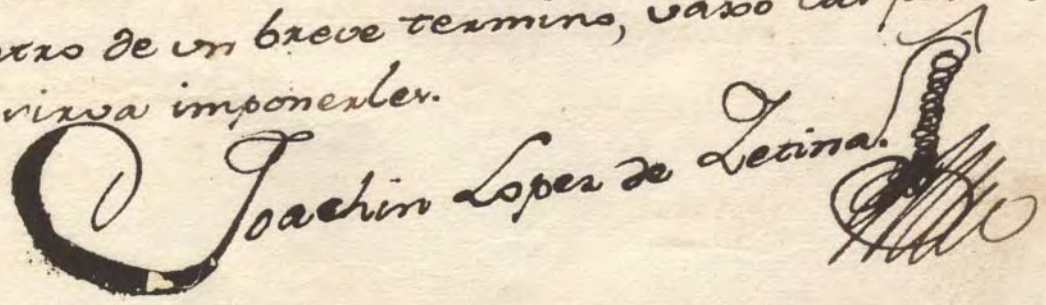 tro de un breve termino, vaxo las
sirva imponerles.
Joachin Lopez de Zetina.